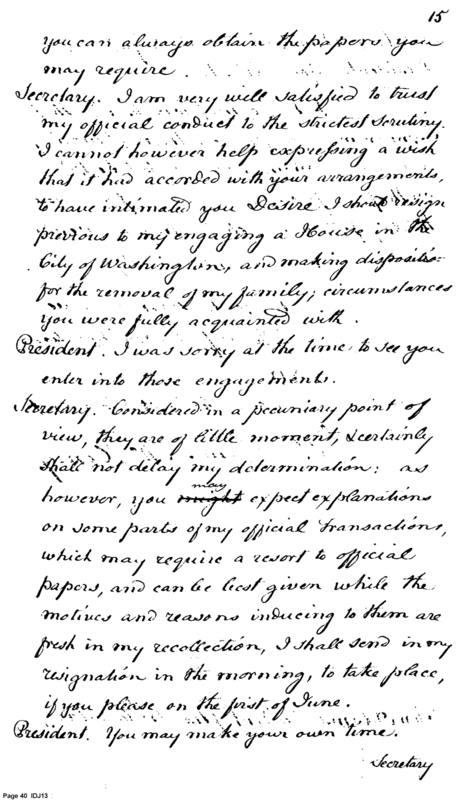 15
you can always obtain the papers you
may require.
Secretary. I am very well satisfied to trust
my official conduct to the strictest scrutiny.
I cannot however help expressing a wish
that it had accorded with your arrangements,
to have intimated you Desire I should resign
previous to my engaging a House in the
City of Washington, and making dispositio-
for the removal of my family; circumstances
you were fully acquainted with.
President. I was sorry at the time to see you
enter into those engagements.
Secretary. Considered in a pecuniary point of
view, they are of little moment, & certainly
shall not delay my determination: as
may
however, you might expect explanations
on some parts of my official transactions,
which may require a resort to official
papers, and can be best given while the
motives and reasons inducing to them are
fresh in my recollection, I shall send in my
resignation in the morning, to take place,
if you please on the first of June.
President. You may make your own time.
Secretary
Page 40 IDJ13